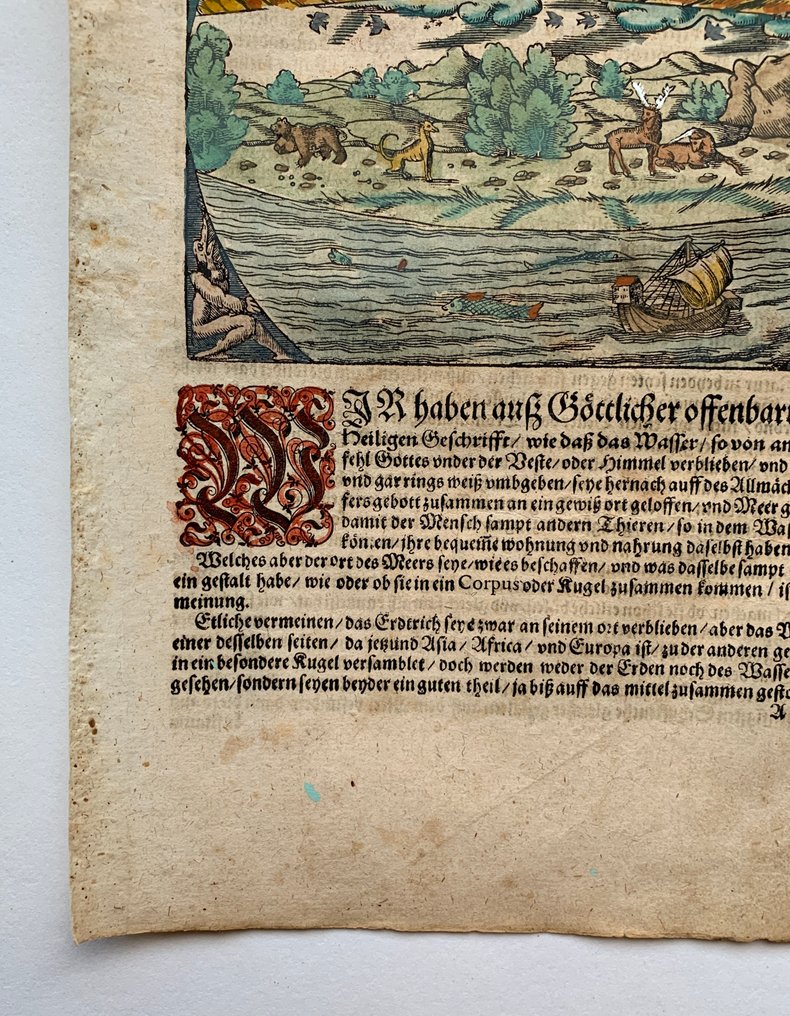 WIR haben auß Göttlicher offenbaru
Heiligen Geschrifft/ wie daß das Wasser/ so von an
fehl Gottes vnder der Veste/ oder Himmel verblieben/ vnd
vnd gar rings weiß vmbgeben/ seye hernach auff des Allmäch
fers gebott zusammen an ein gewiß ort geloffen/ vnd Meer g
damit der Mensch sampt andern Thieren/ so in dem Was
kön:en/ jhre bequem̃e wohnung vnd nahrung daselbst haben
Welches aber der ort des Meers seye/ wie es beschaffen/ vnd was dasselbe sampt
ein gestalt habe/ wie oder ob sie in ein Corpus oder Kugel zusammen kommen/ is
meinung.
Etliche vermeinen/ das Erdtrich seye zwar an seinem ort verblieben/ aber das
einer desselben seiten/ da jetzund Asia/ Africa/ vnd Europa ist/ zu der anderen ge
in ein besondere Kugel versamblet/ doch werden weder der Erden noch des Wasse
gesehen/ sondern seyen beyder ein guten theil/ ja biß auff das mittel zusammen gesto
A